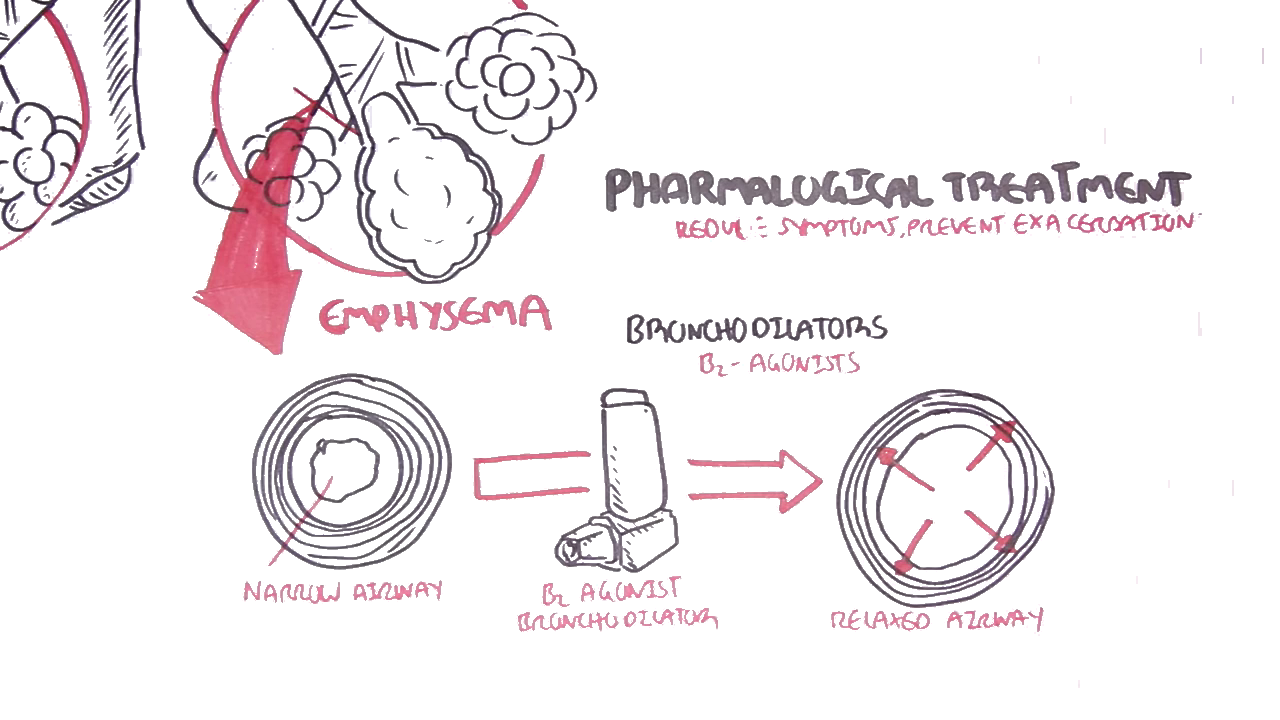 PHARMALOGICAL TREATMENT
SYMPTOMS, PREVENT EXACERBATION
EMPHYSEMA
BRONCHODILATORS
B2 - AGONISTS
NARROW AIRWAY
B2 AGONIST
BRONCHODILATOR
RELAXED AIRWAY